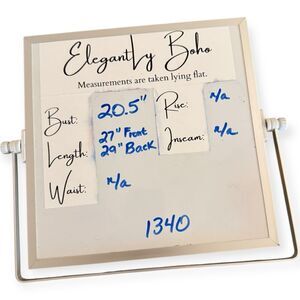 ElegantLy Boho
Measurements are taken lying flat.
Bust: 20.5"
Rise: n/a
Length: 27" Front
29" Back
Inseam: n/a
Waist: n/a
1340